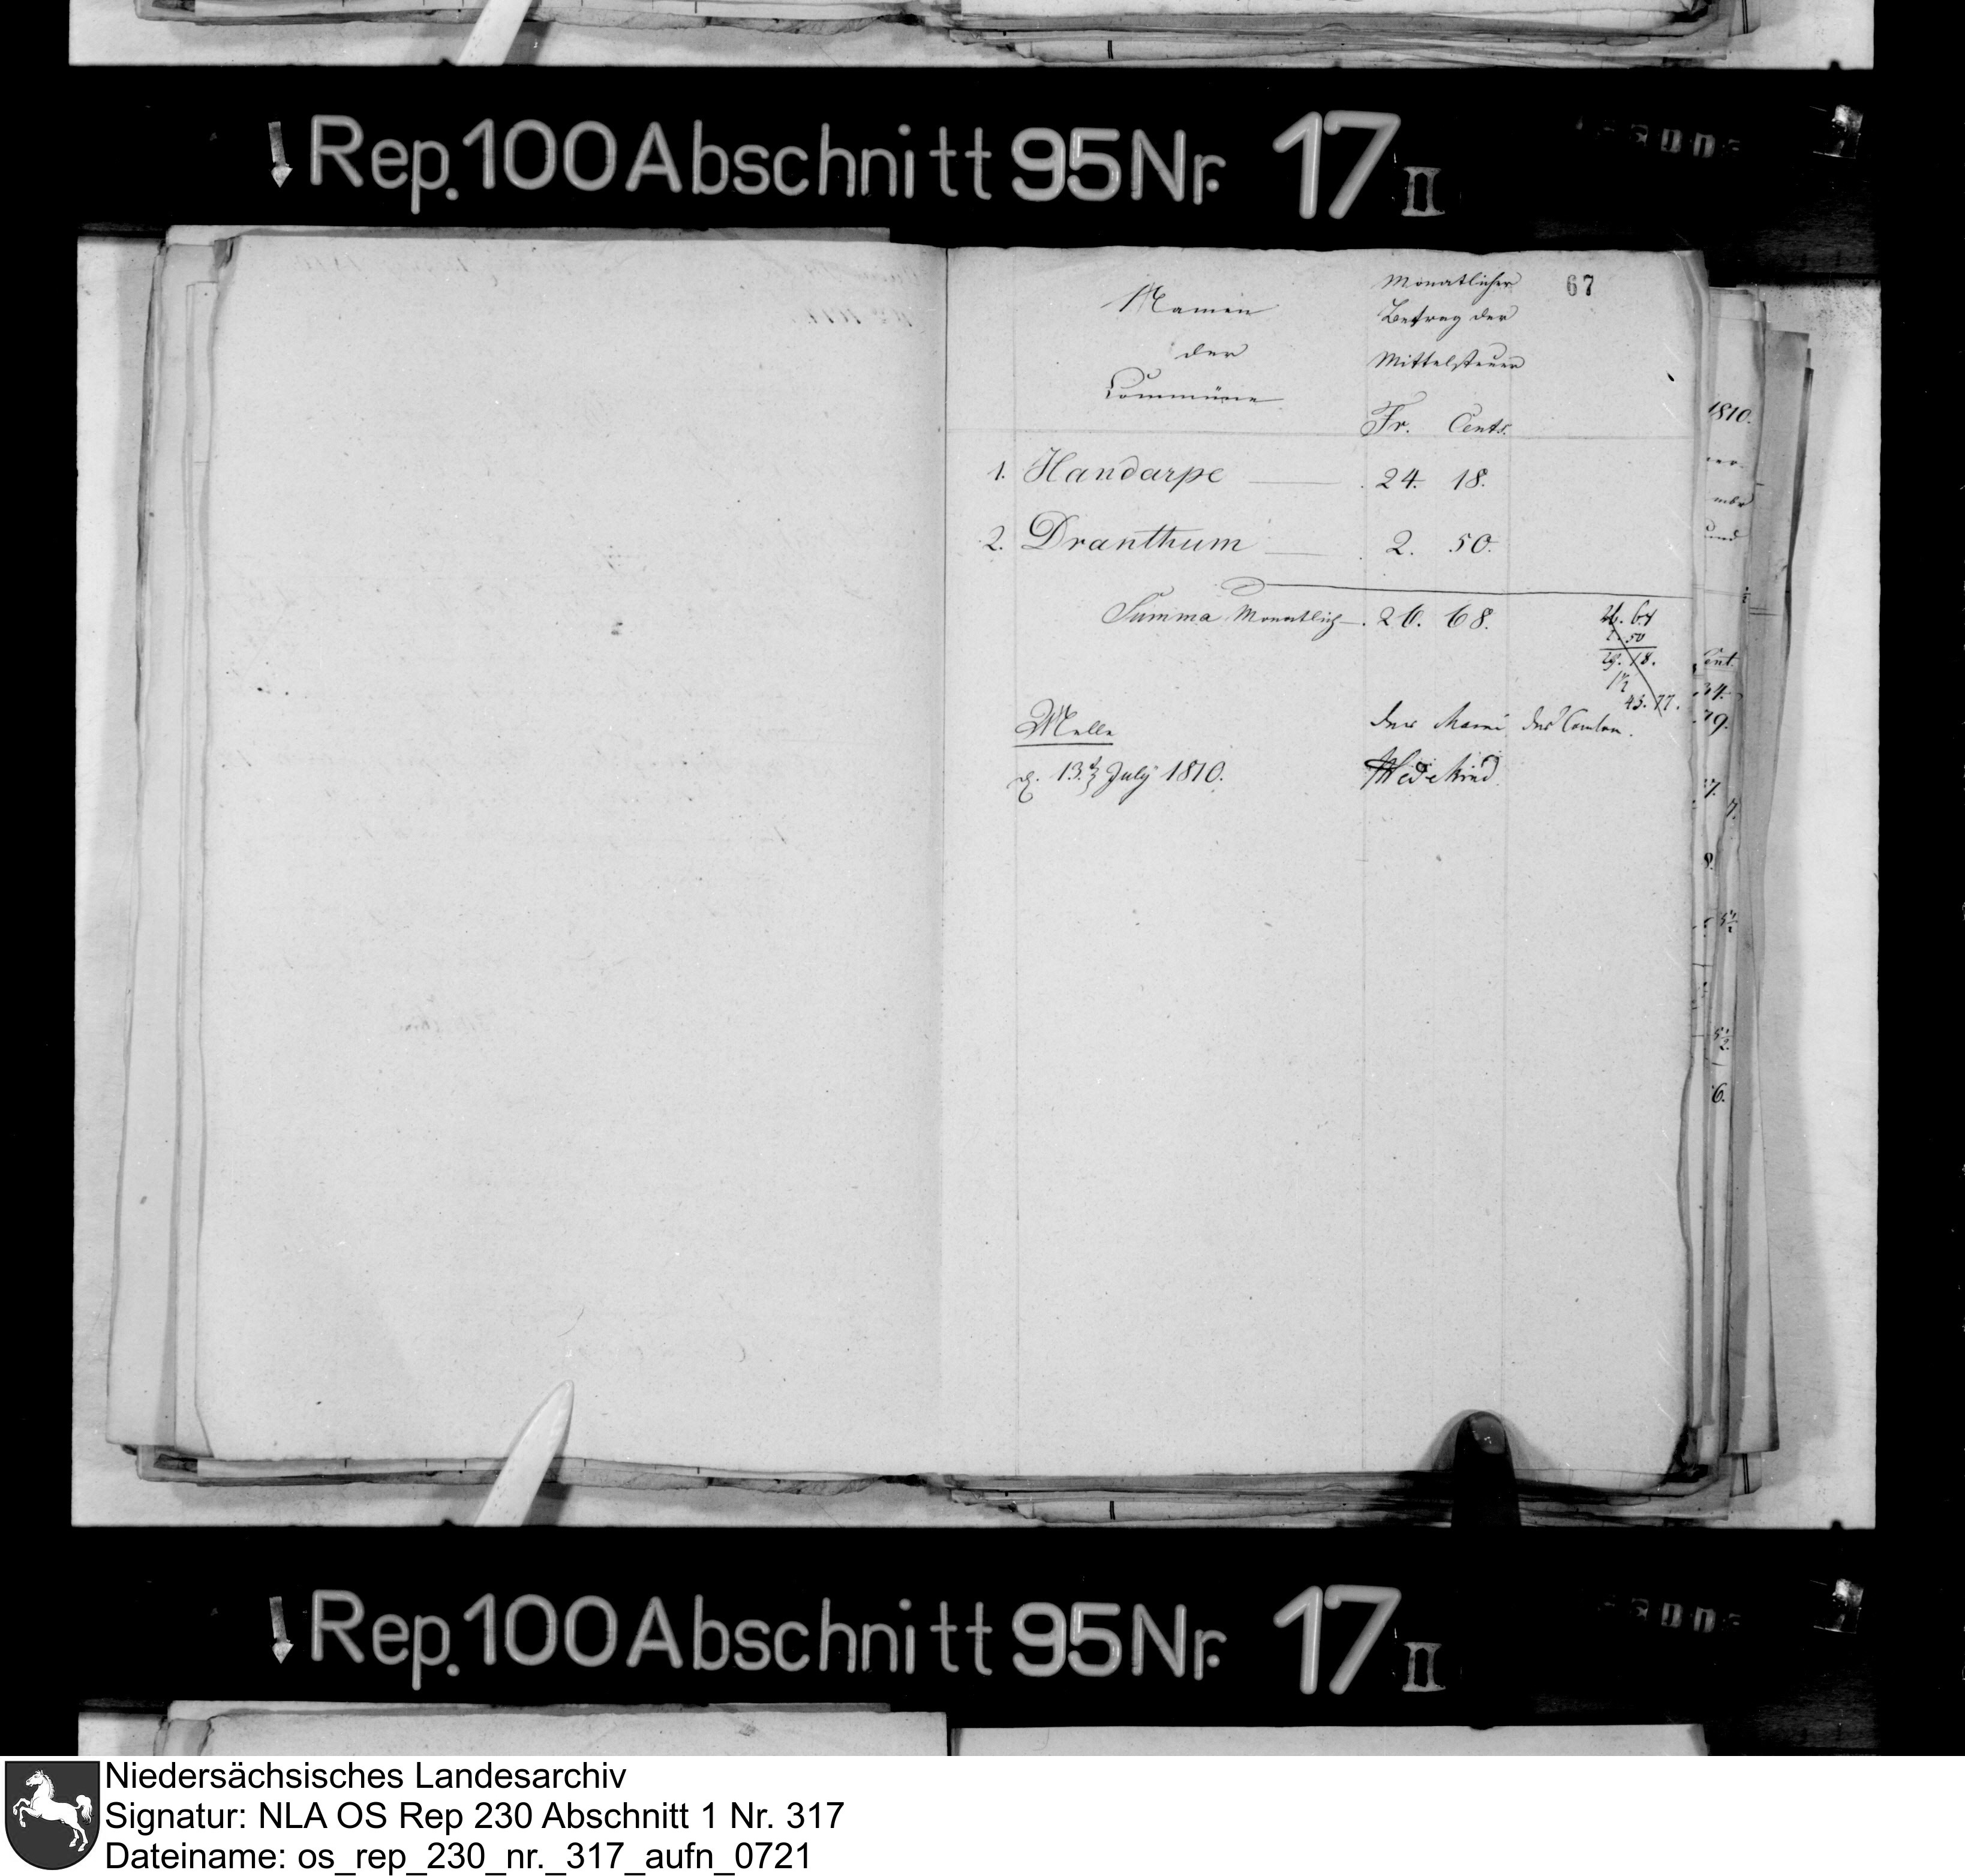 Rep. 100 Abschnitt 95 Nr. 17 II
67
Namen
der
Commüne
Monatlicher
Betrag der
Mittelsteuer
Fr. Cents.
1. Handarpe . 24. 18.
2. Dranthum . 2. 50.
Summa Monatlich . 26. 68.
26. 64
2. 50
29. 18.
12
43. 77.
Melle
d. 13. July 1810.
Der Maire des Canton.
Wedekind
1810.
und
Cent.
34.
79.
7.
7.
8.
5 1/2
5 1/2.
6.
Rep. 100 Abschnitt 95 Nr. 17 II
Niedersächsisches Landesarchiv
Signatur: NLA OS Rep 230 Abschnitt 1 Nr. 317
Dateiname: os_rep_230_nr._317_aufn_0721